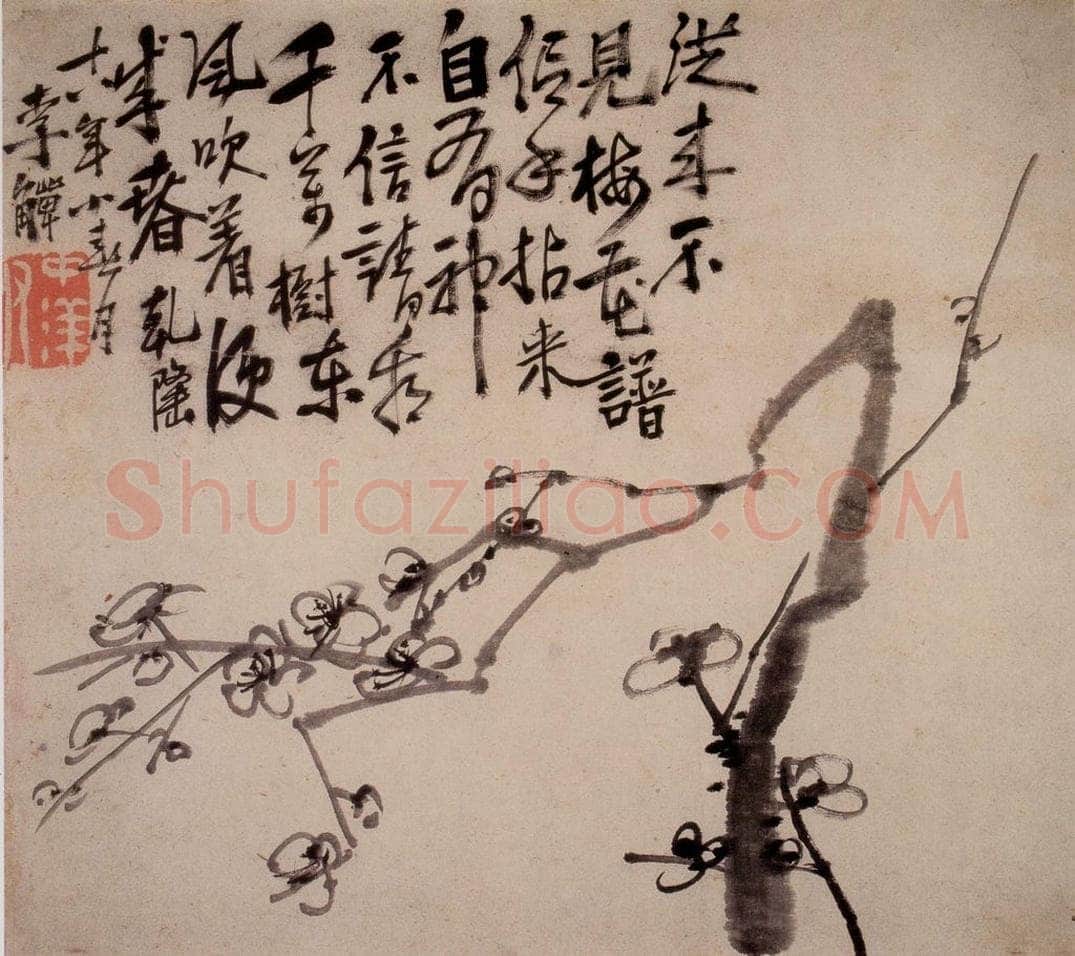 從来不
見梅花譜
信手拈来
自有神
不信請看
千萬樹東
風吹着便
成春 乾隆
十八年小春月
李鱓
Shufaziliao.COM